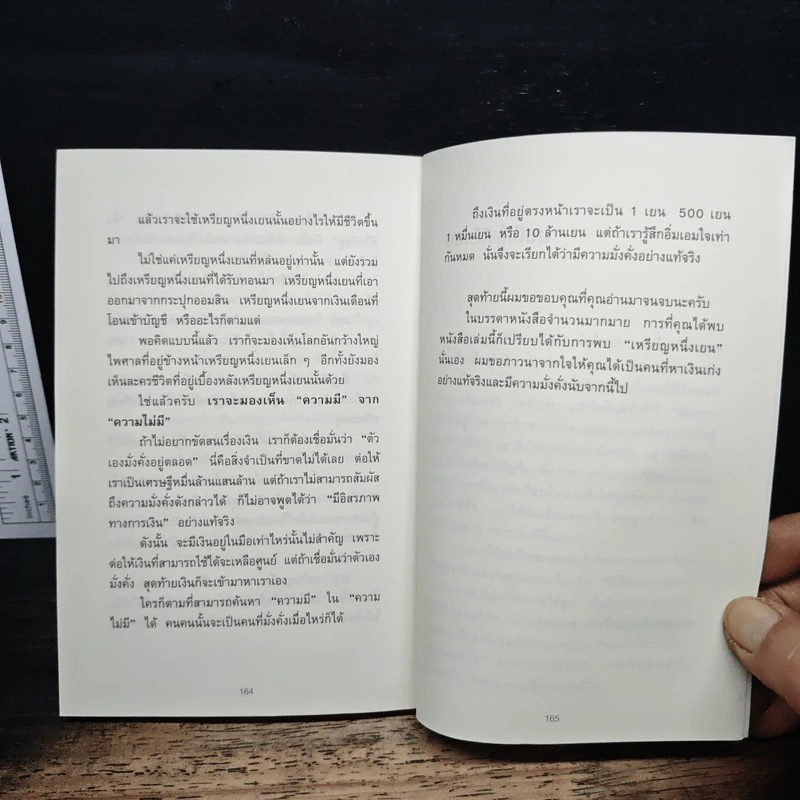 แล้วเราจะใช้เหรียญหนึ่งเยนนั้นอย่างไรให้มีชีวิตขึ้น
มา
ไม่ใช่แค่เหรียญหนึ่งเยนที่หล่นอยู่เท่านั้น แต่ยังรวม
ไปถึงเหรียญหนึ่งเยนที่ได้รับทอนมา เหรียญหนึ่งเยนที่เอา
ออกมาจากกระปุกออมสิน เหรียญหนึ่งเยนจากเงินเดือนที่
โอนเข้าบัญชี หรืออะไรก็ตามแต่
พอคิดแบบนี้แล้ว เราก็จะมองเห็นโลกอันกว้างใหญ่
ไพศาลที่อยู่ข้างหน้าเหรียญหนึ่งเยนเล็ก ๆ อีกทั้งยังมอง
เห็นละครชีวิตที่อยู่เบื้องหลังเหรียญหนึ่งเยนนั้นด้วย
ใช่แล้วครับ เราจะมองเห็น “ความมี” จาก
“ความไม่มี”
ถ้าไม่อยากขัดสนเรื่องเงิน เราก็ต้องเชื่อมั่นว่า “ตัว
เองมั่งคั่งอยู่ตลอด” นี่คือสิ่งจำเป็นที่ขาดไม่ได้เลย ต่อให้
เราเป็นเศรษฐีหมื่นล้านแสนล้าน แต่ถ้าเราไม่สามารถสัมผัส
ถึงความมั่งคั่งดังกล่าวได้ ก็ไม่อาจพูดได้ว่า “มีอิสรภาพ
ทางการเงิน” อย่างแท้จริง
ดังนั้น จะมีเงินอยู่ในมือเท่าไหร่นั้นไม่สำคัญ เพราะ
ต่อให้เงินที่สามารถใช้ได้จะเหลือศูนย์ แต่ถ้าเชื่อมั่นว่าตัวเอง
มั่งคั่ง สุดท้ายเงินก็จะเข้ามาหาเราเอง
ใครก็ตามที่สามารถค้นหา “ความมี” ใน “ความ
ไม่มี” ได้ คนคนนั้นจะเป็นคนที่มั่งคั่งเมื่อไหร่ก็ได้
164
ถึงเงินที่อยู่ตรงหน้าเราจะเป็น 1 เยน 500 เยน
1 หมื่นเยน หรือ 10 ล้านเยน แต่ถ้าเรารู้สึกอิ่มเอมใจเท่า
กันหมด นั่นจึงจะเรียกได้ว่ามีความมั่งคั่งอย่างแท้จริง
สุดท้ายนี้ผมขอขอบคุณที่คุณอ่านมาจนจบนะครับ
ในบรรดาหนังสือจำนวนมากมาย การที่คุณได้พบ
หนังสือเล่มนี้ก็เปรียบได้กับการพบ “เหรียญหนึ่งเยน”
นั่นเอง ผมขอภาวนาจากใจให้คุณได้เป็นคนที่หาเงินเก่ง
อย่างแท้จริงและมีความมั่งคั่งนับจากนี้ไป
165